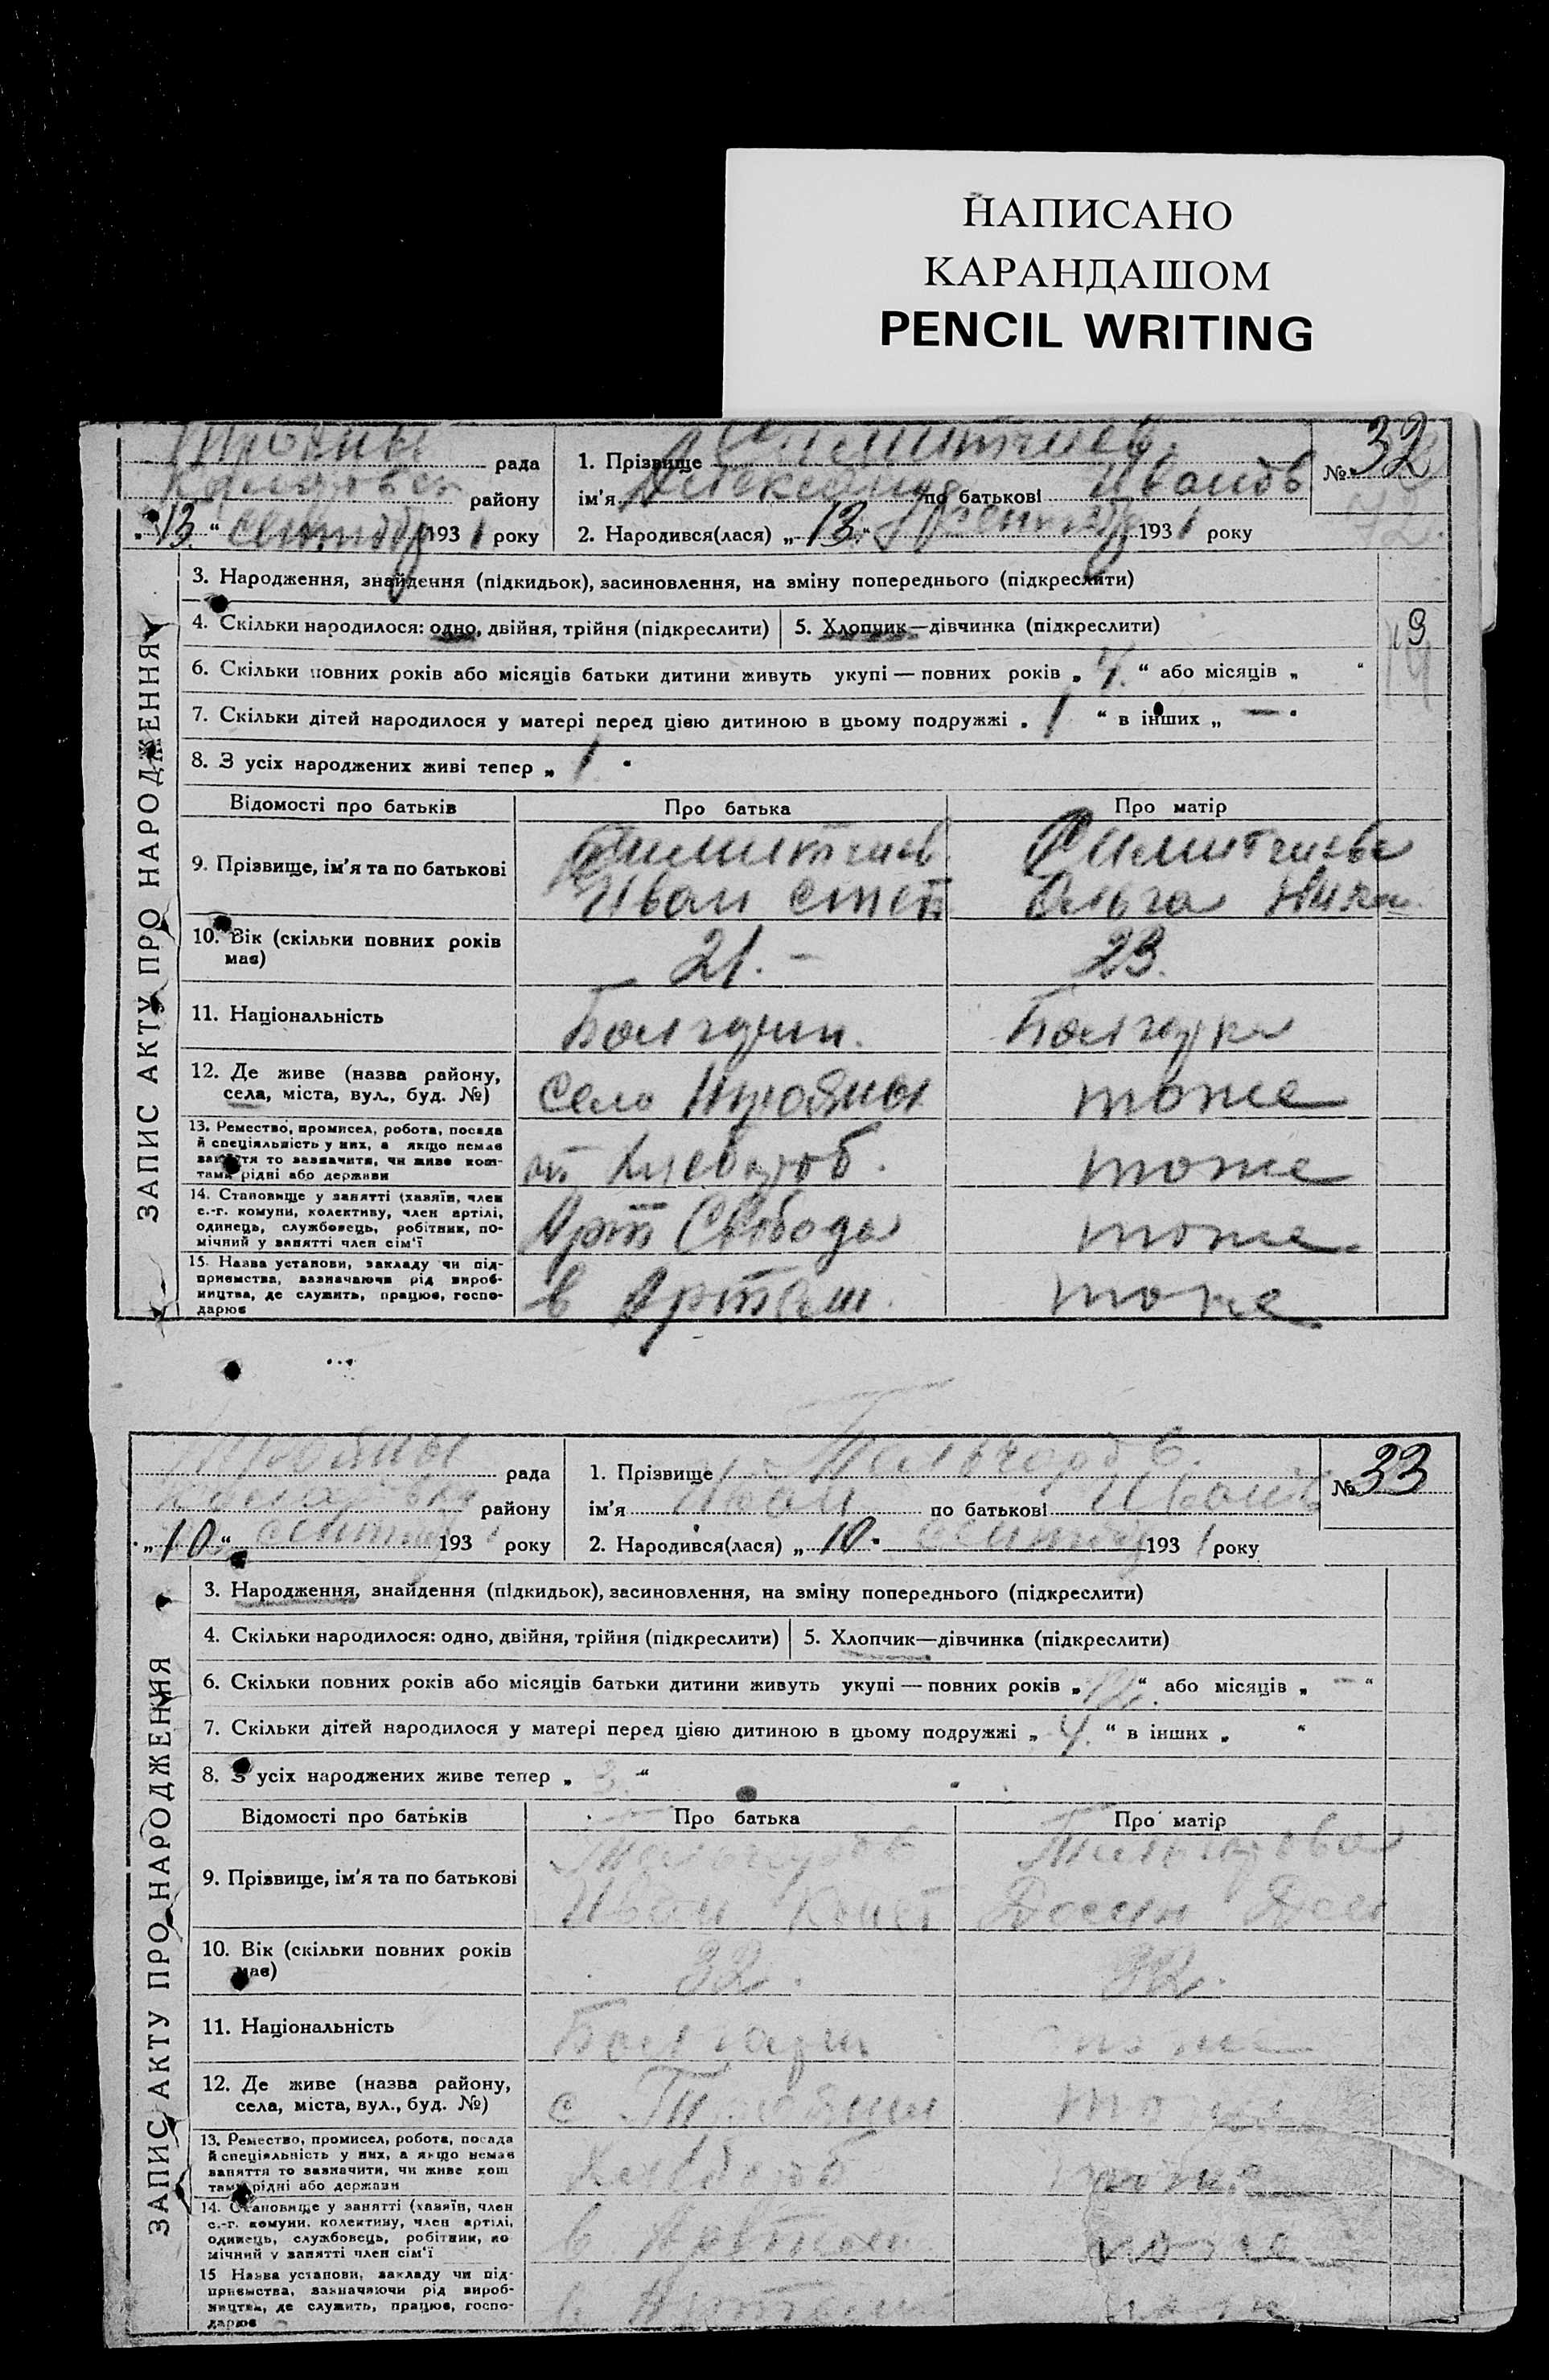 НАПИСАНО
КАРАНДАШОМ
PENCIL WRITING
Трояны рада
району
„13“ сентябр 1931 року
1. Прізвище Димитриев.
ім'я Александр по батькові Иванов
2. Народився(лася) „13“ сентябр 1931 року
№ 32
72.
ЗАПИС АКТУ ПРО НАРОДЖЕННЯ
3. Народження, знайдення (підкидьок), засиновлення, на зміну попереднього (підкреслити)
4. Скільки народилося: одно, двійня, трійня (підкреслити) 5. Хлопчик—дівчинка (підкреслити)
19
6. Скільки повних років або місяців батьки дитини живуть укупі — повних років „4.“ або місяців „ “
7. Скільки дітей народилося у матері перед цією дитиною в цьому подружжі „1“ в інших „—“
8. З усіх народжених живі тепер „1.“
Відомості про батьків Про батька Про матір
9. Прізвище, ім'я та по батькові
Димитриев. Димитриева
Иван Степ. Ольга
10. Вік (скільки повних років має) 21. – 23.
11. Національність Болгарин. Болгарка
12. Де живе (назва району, села, міста, вул., буд. №) Село Трояны тоже
13. Ремество, промисел, робота, посада
й спеціяльність у них, а якщо немає
заняття то зазначити, чи живе кош-
тами рідні або держави
Хлебороб. тоже
14. Становище у занятті (хазяїн, член
с.-г. комуни, колективу, член артілі,
одинець, службовець, робітник, по-
мічний у занятті член сім'ї
Арт Свобода тоже
15. Назва установи, закладу чи під-
приємства, зазначаючи рід вироб-
ництва, де служить, працює, госпо-
дарює
в Артели. тоже
Трояны рада
району
„10“ сентяб 1931 року
1. Прізвище
ім'я Иван по батькові Иванов
2. Народився(лася) „10“ сентяб 1931 року
№ 33
ЗАПИС АКТУ ПРО НАРОДЖЕННЯ
3. Народження, знайдення (підкидьок), засиновлення, на зміну попереднього (підкреслити)
4. Скільки народилося: одно, двійня, трійня (підкреслити) 5. Хлопчик—дівчинка (підкреслити)
6. Скільки повних років або місяців батьки дитини живуть укупі — повних років „12“ або місяців „—“
7. Скільки дітей народилося у матері перед цією дитиною в цьому подружжі „4.“ в інших „ “
8. З усіх народжених живе тепер „3.“
Відомості про батьків Про батька Про матір
9. Прізвище, ім'я та по батькові
Иван
10. Вік (скільки повних років має) 32. 32.
11. Національність Болгарин тоже
12. Де живе (назва району, села, міста, вул., буд. №) с. Трояны тоже
13. Ремество, промисел, робота, посада
й спеціяльність у них, а якщо немає
заняття то зазначити, чи живе кош
тами рідні або держави
Хлебороб тоже
14. Становище у занятті (хазяїн, член
с.-г. комуни, колективу, член артілі,
одинець, службовець, робітник, по
мічний у занятті член сім'ї
в Артели тоже
15 Назва установи, закладу чи під-
приємства, зазначаючи рід вироб-
ництва, де служить, працює, госпо-
дарює
в Артели тоже